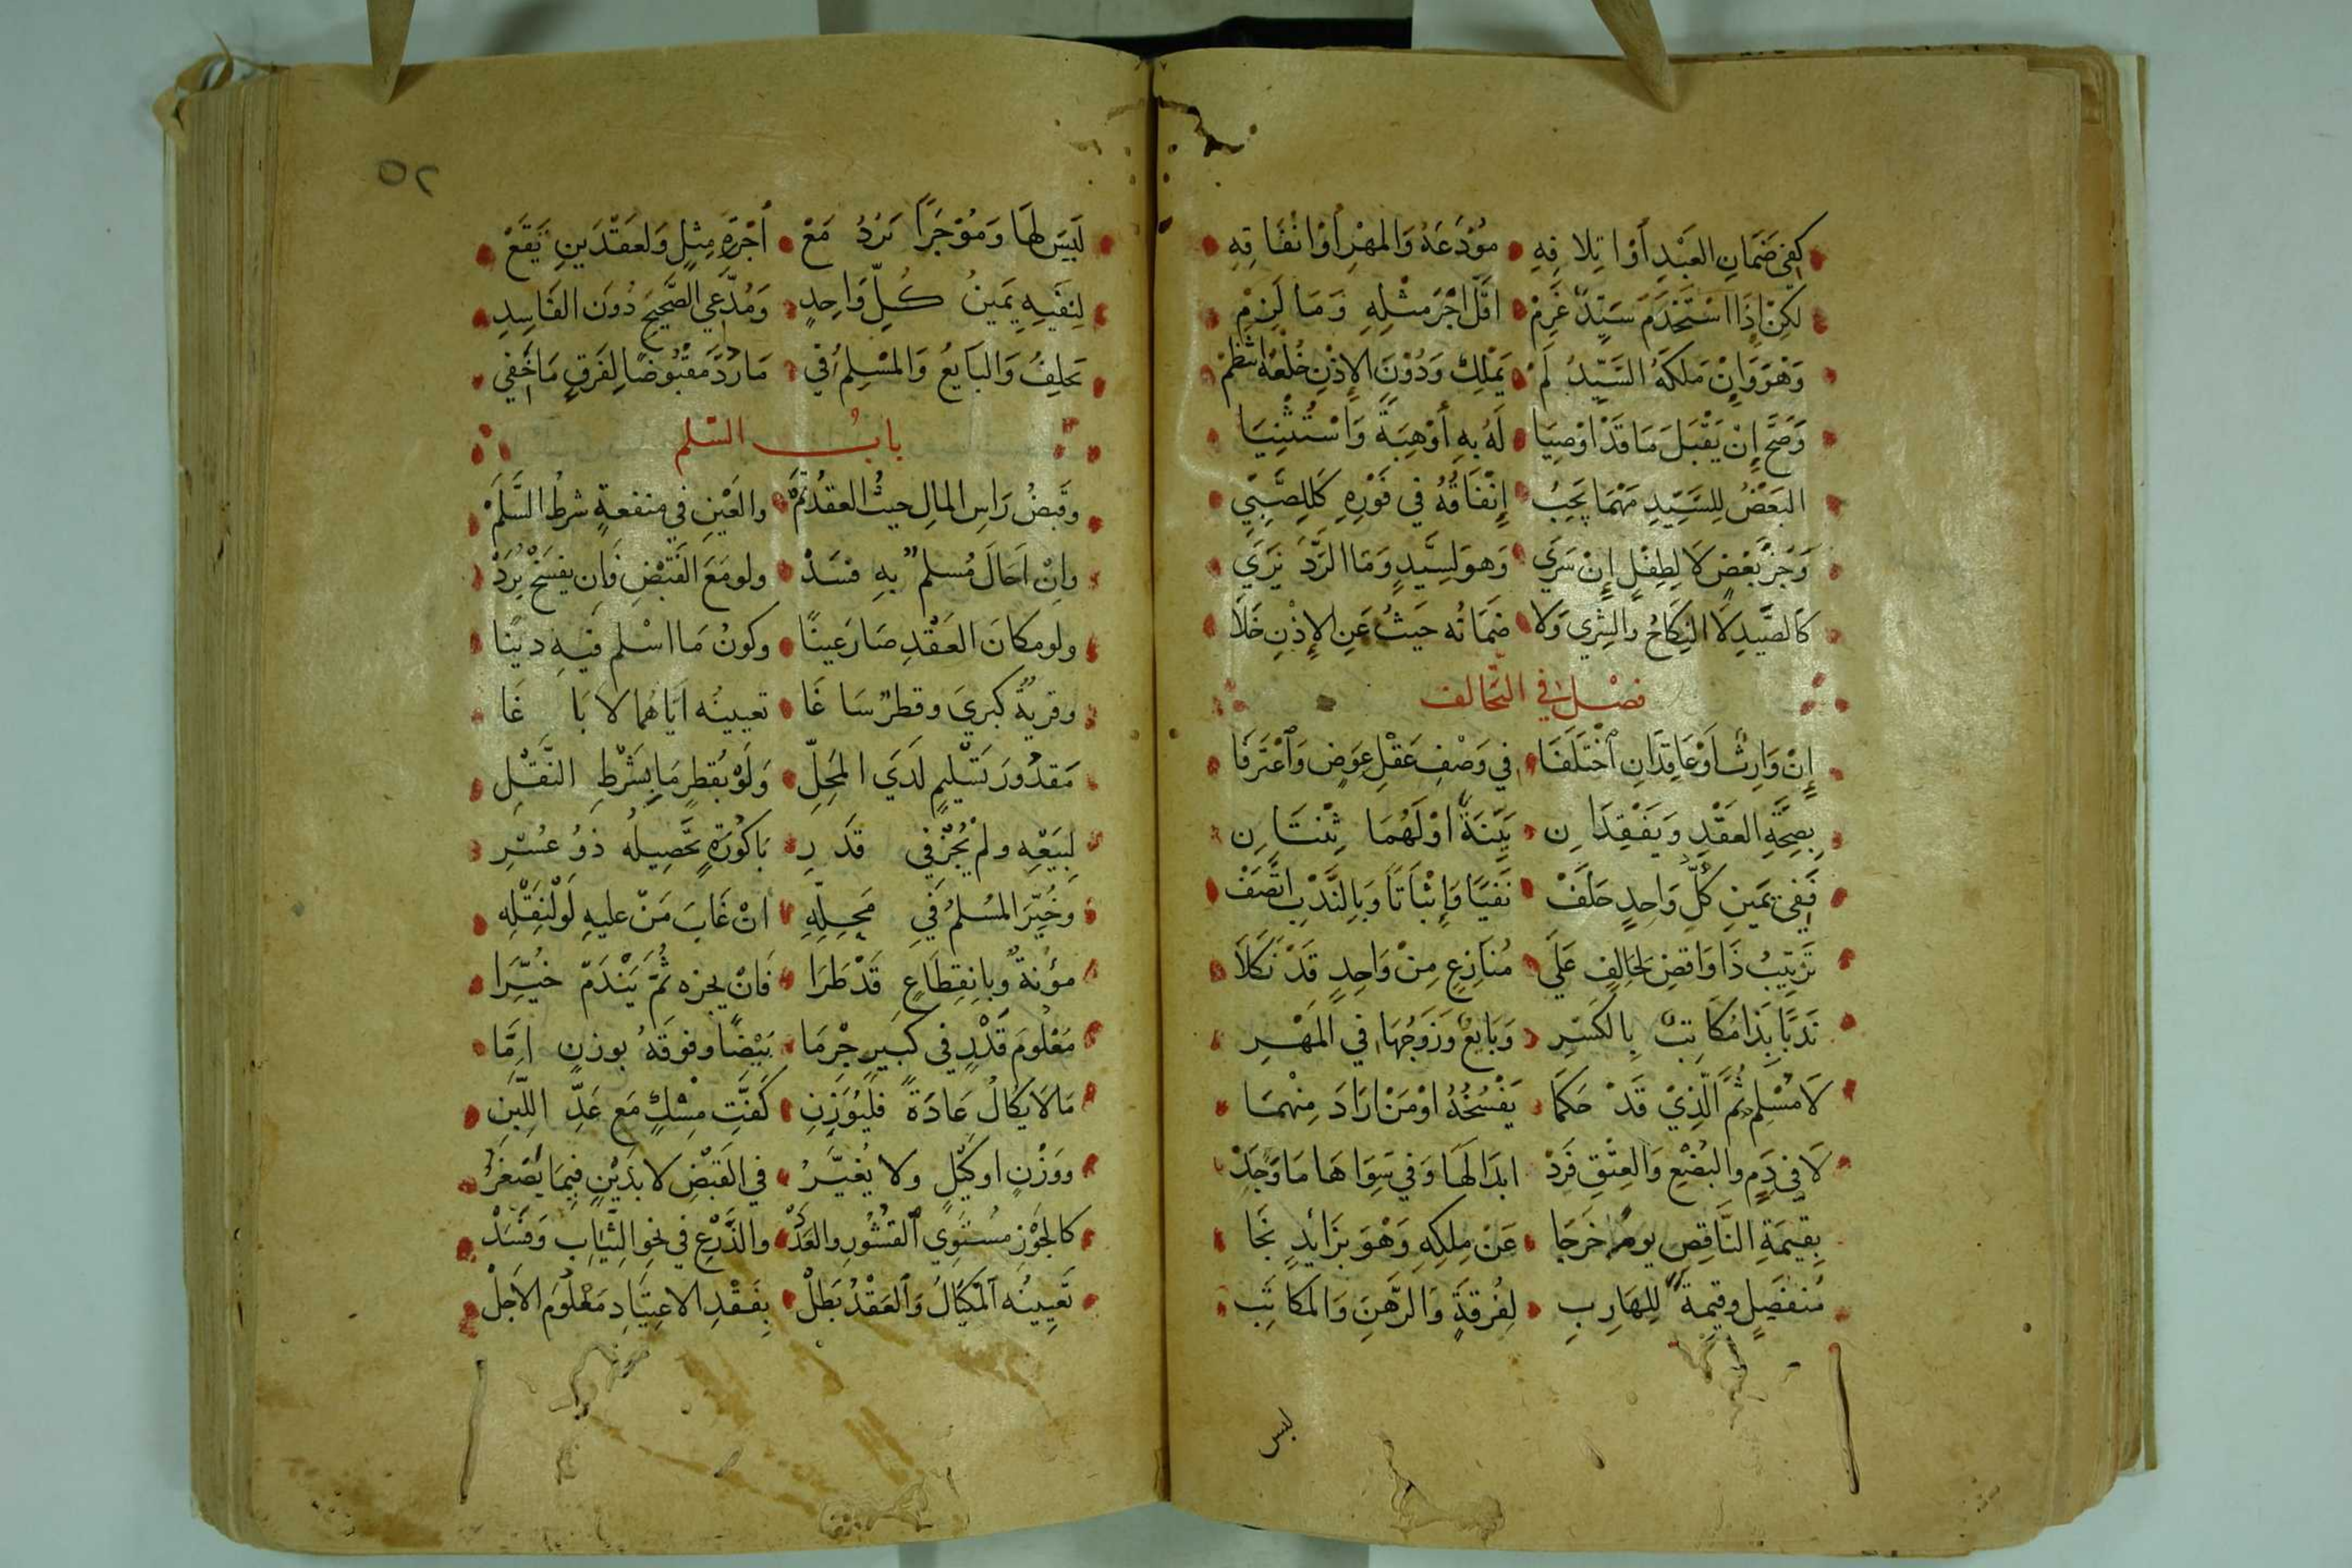 كفي ضمان العبد أو اتلافه مودعه والمهر أو انفاقه
لكن إذا استخدم سيد غرم اقل اجر مثله وما لزم
وهو وإن ملكه السيد لم يملك ودون الإذن خلعه انتظم
وصح إن يقبل ما قد اوصيا له به أو هبة واستثنيا
البعض للسيد مهما يجب إنفاقه في فوره كللصبي
وجز بعض لا لطفل إن سري وهو لسيد وما الرد يري
كالصيد لا النكاح والشري ولا ضمانه حيث عن الإذن خلا
فصل في التحالف
إن وارثا أو عاقدان اختلفا في وصف عقل عوض واعترفا
بصحة العقد ويفقدان بينة أو لهما ثنتان
ففي يمين كل واحد حلف نفيا وإثباتا وبالندب اتصف
ترتيب ذا واقض لحالف علي منازع من واحد قد نكلا
ندبا بذا مكاتب بالكسر وبايع وزوجها في المهر
لا مسلم ثم الذي قد حكما يفسخه او من اراد منهما
لا في دم والبضع والعتق فرد ابدالها وفي سواها ما وجد
بقيمة الناقص يوم خرجا عن ملكه وهو بزائد نجا
منفصل وقيمة للهارب لفرقة والرهن والمكاتب
لبس
٥٢
لبيس لها ومؤجرا ترد مع أجرة مثل ولعقدين يقع
لنفيه يمين كل واحد ومدعي الصحيح دون الفاسد
تحلف والبايع والمسلم في ما رد مقبوضا لفرق ما خفي
باب السلم
وقبض راس المال حيث العقد تم والعين في منفعة شرط السلم
وان احال مسلم به فسد ولو مع القبض فان يفسخ يرد
ولو مكان العقد صار عينا وكون ما اسلم فيه دينا
وقرية كبري وقطر ساغا تعيينه اياهما لا باغا
مقدور تسليم لدي المحل ولو بقطر ما بشرط النقل
لبيعه ولم يجز في قدر باكورة تحصيله ذو عسر
وخير المسلم في محله ان غاب من عليه لو لنقله
مؤنة وبانقطاع قد طرا فان يجزه ثم يندم خيرا
معلوم قدر في كبير جرما بيضا وفوقه بوزن اما
ما لا يكال عادة فليوزن كفت مسك مع عد اللبن
ووزن او كيل ولا يغير في القبض لا بذين فيما يصغر
كالجوز مستوي القشور والعد والذرع في نحو الثياب وفسد
تعيينه المكيال والعقد بطل بفقد الاعتياد معلوم الاجل